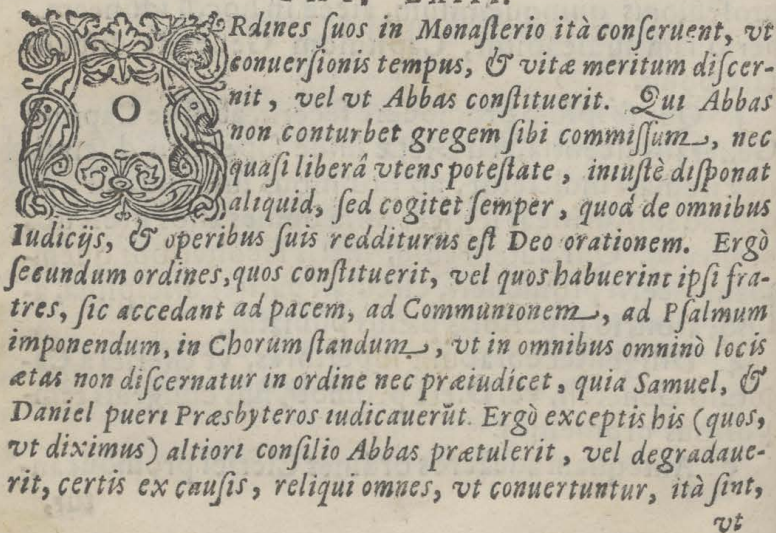 ORdines suos in Monasterio ità conseruent, vt
conuersionis tempus, & vitæ meritum discer-
nit, vel vt Abbas constituerit. Qui Abbas
non conturbet gregem sibi commissum, nec
quasi liberâ vtens potestate, iniustè disponat
aliquid, sed cogitet semper, quod de omnibus
Iudicijs, & operibus suis redditurus est Deo orationem. Ergò
secundum ordines, quos constituerit, vel quos habuerint ipsi fra-
tres, sic accedant ad pacem, ad Communionem, ad Psalmum
imponendum, in Chorum standum, vt in omnibus omninò locis
ætas non discernatur in ordine nec præiudicet, quia Samuel, &
Daniel pueri Præsbyteros iudicauerūt. Ergò exceptis his (quos,
vt diximus) altiori consilio Abbas prætulerit, vel degradaue-
rit, certis ex causis, reliqui omnes, vt conuertuntur, ità sint,
vt